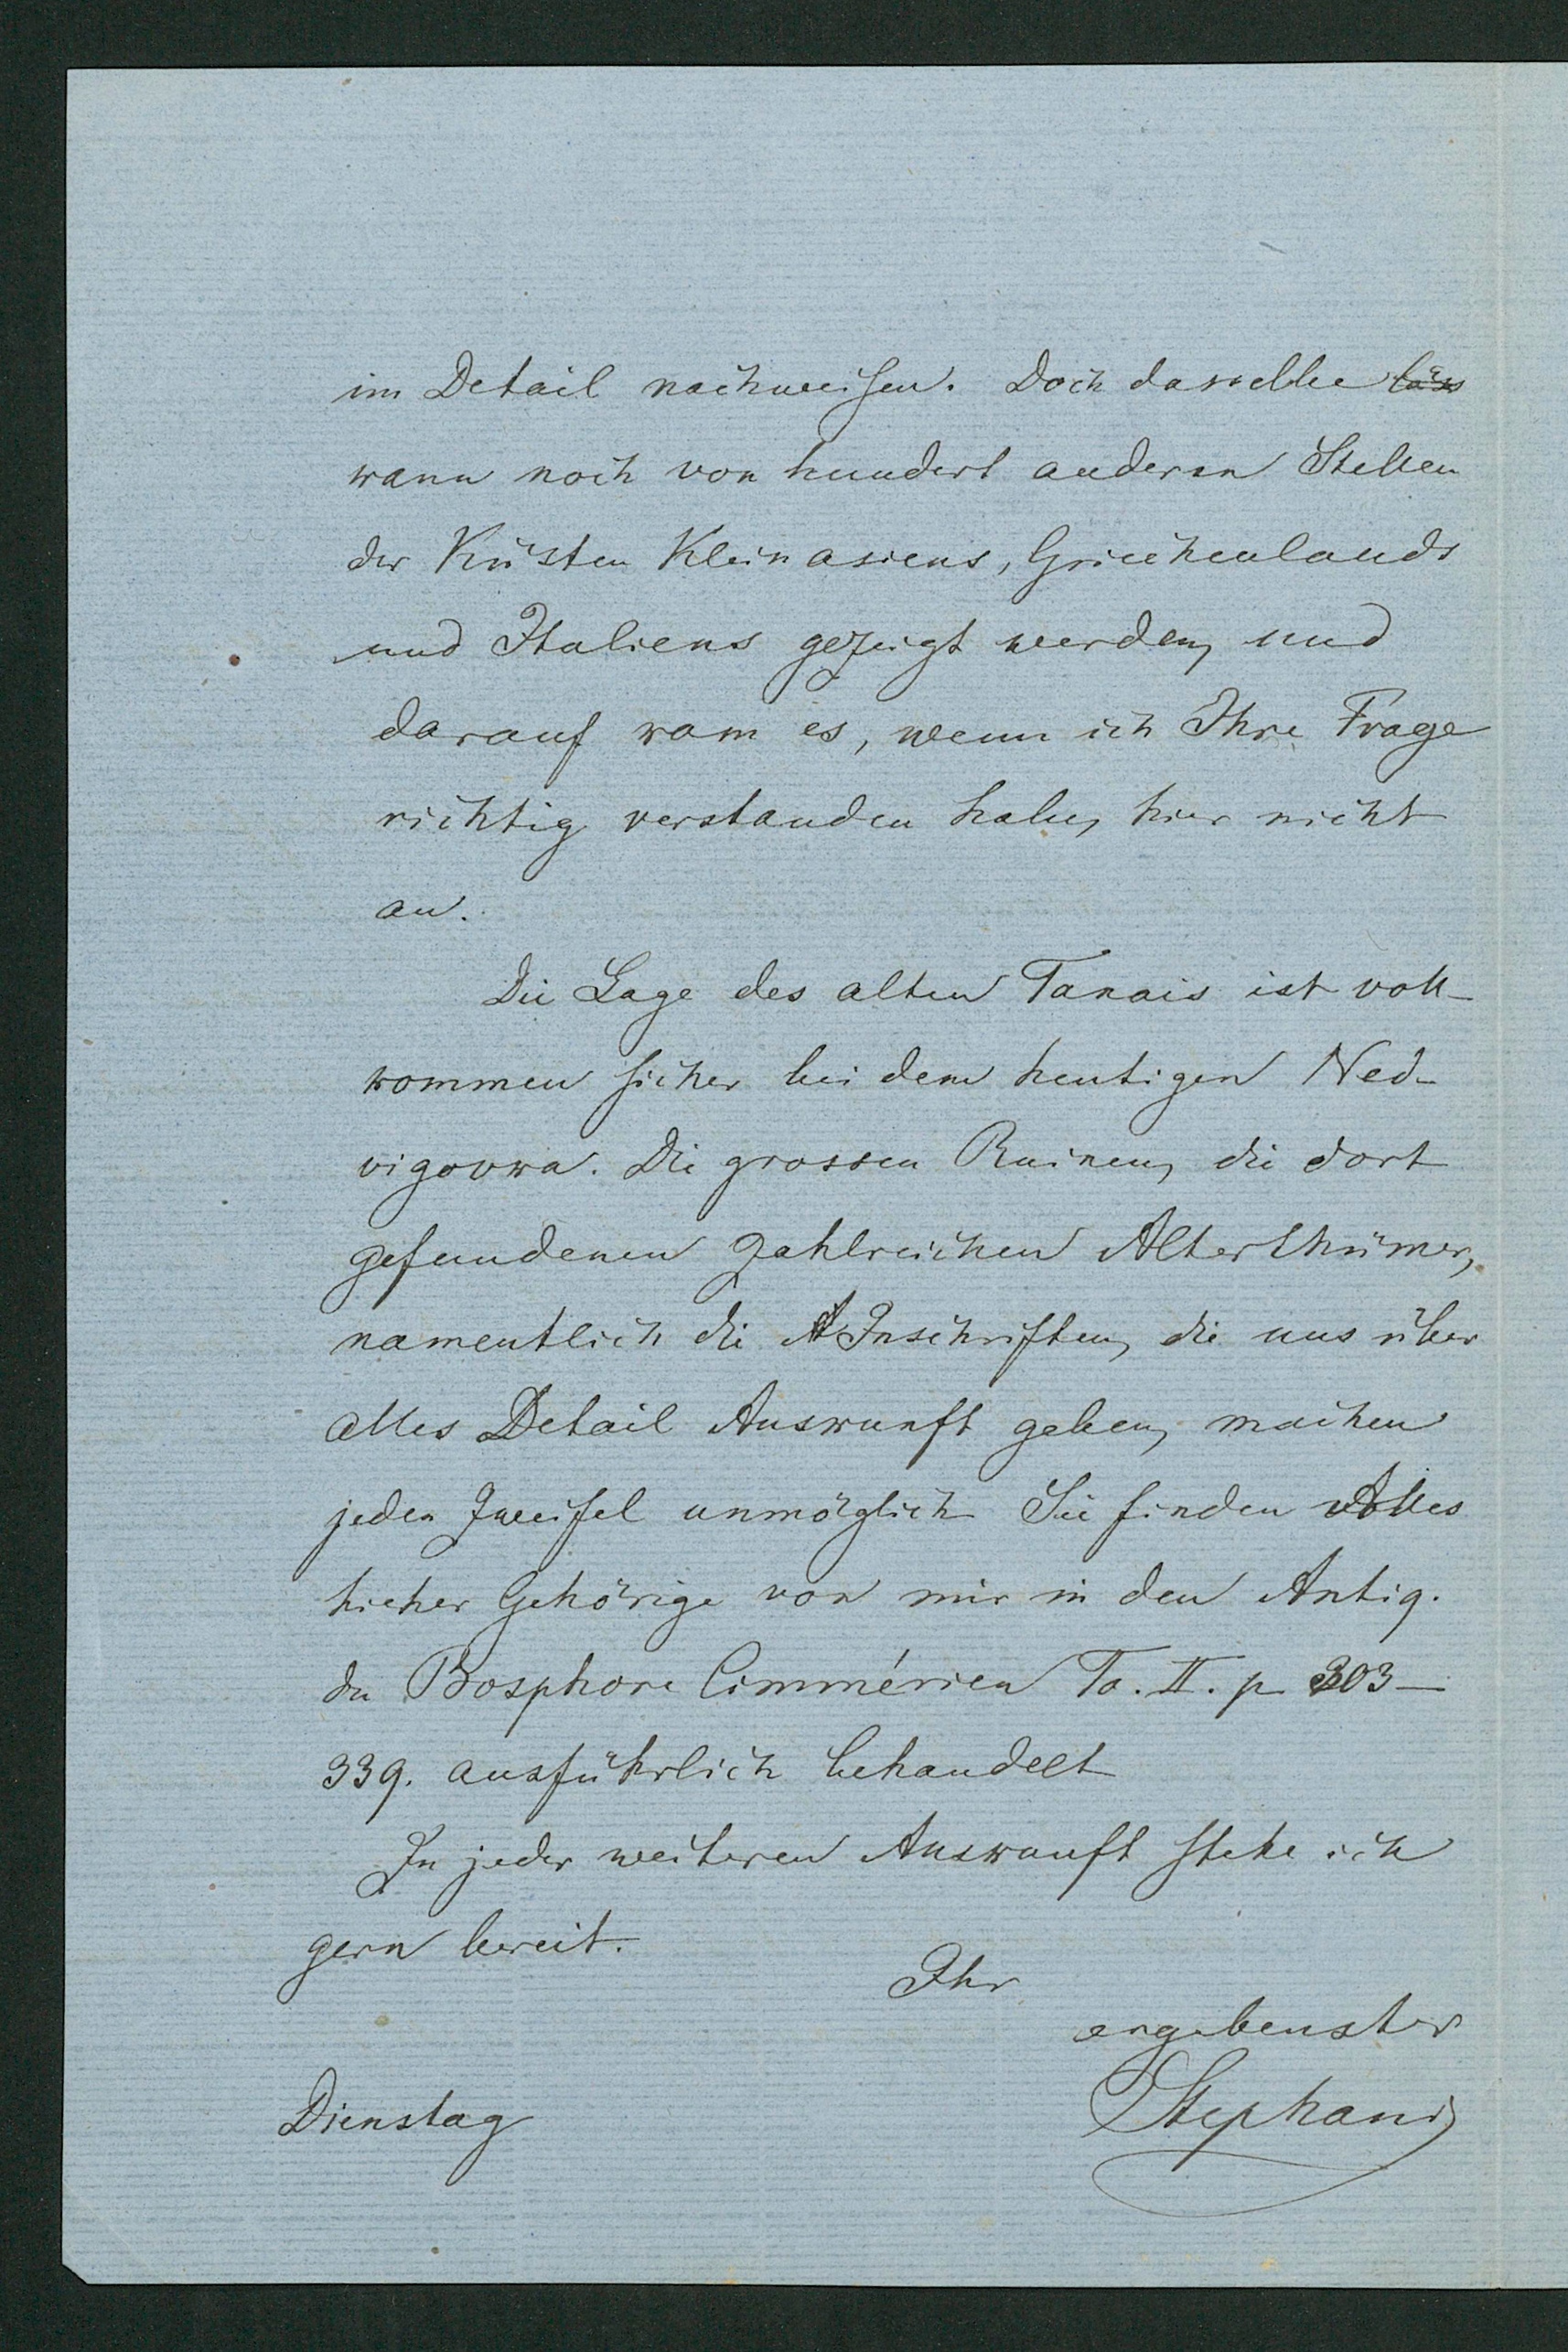 im Detail nachweisen. Doch dasselbe läss
kann noch von hundert anderen Stellen
der Küsten Kleinasiens, Griechenlands
und Italiens gezeigt werden, und
darauf kam es, wenn ich Ihre Frage
richtig verstanden habe, hier nicht
an.
Die Lage des alten Tanais ist voll-
kommen sicher bei dem heutigen Ned-
vigovka. Die grossen Ruinen, die dort
gefundenen zahlreichen Alterthümer,
namentlich die Inschriften, die uns über
alles Detail Auskunft geben, machen
jeden Zweifel unmöglich Sie finden Alles
hieher Gehörige von mir in den Antiq.
du Bosphore Cimmérien To. II. p 303-
339. ausführlich behandelt
Zu jeder weiteren Auskunft stehe ich
gern bereit.
Ihr
ergebenster
Stephani
Dienstag